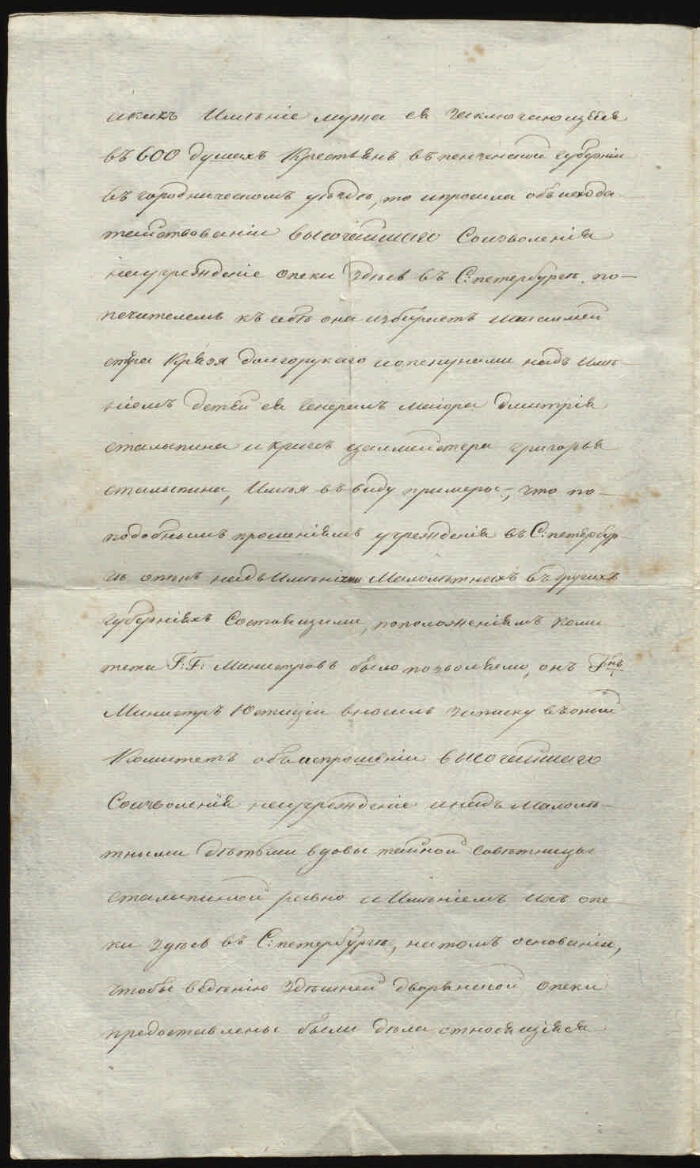 акакъ Имѣніе мужа ея заключающѣеся
въ 600 душахъ Крестьянъ въ пензенской губерніи
въ городническомъ уѣздѣ, то и просила объ исхода
тайствованіи высочайшаго Соизволенія
на учрежденіе опеки здѣсь въ С:петербургѣ, по-
печителемъ къ себѣ она избираетъ
Князя долгорукаго и опекунами надъ Имѣ-
ніемъ детей ея Генералъ Маіора дмитрія
сталыпина и кригсъ цалмейстера григорья
сталыпина, Имѣя въ виду примеры, что по-
подобнымъ прошеніямъ учрежденія въ С:петербур-
гѣ опекъ надъ имѣніями Малолѣтныхъ въ другихъ
губерніяхъ Состоящими, по положеніямъ коми
тета Г:Г: Министровъ было позволяемо, онъ Гнъ
Министръ Юстиціи вносилъ записку въ оный
Комитетъ объ испрошеніи высочайшаго
Соизволенія на учрежденіе и надъ Малолѣ-
тными дѣтьми вдовы тайной совѣтницы
сталыпиной равно и Имѣніемъ ихъ опе
ки здѣсь въ С:петербургѣ, на томъ основаніи,
чтобы вѣденію здѣшней дворянской опеки
предоставлены были дѣла относящіяся